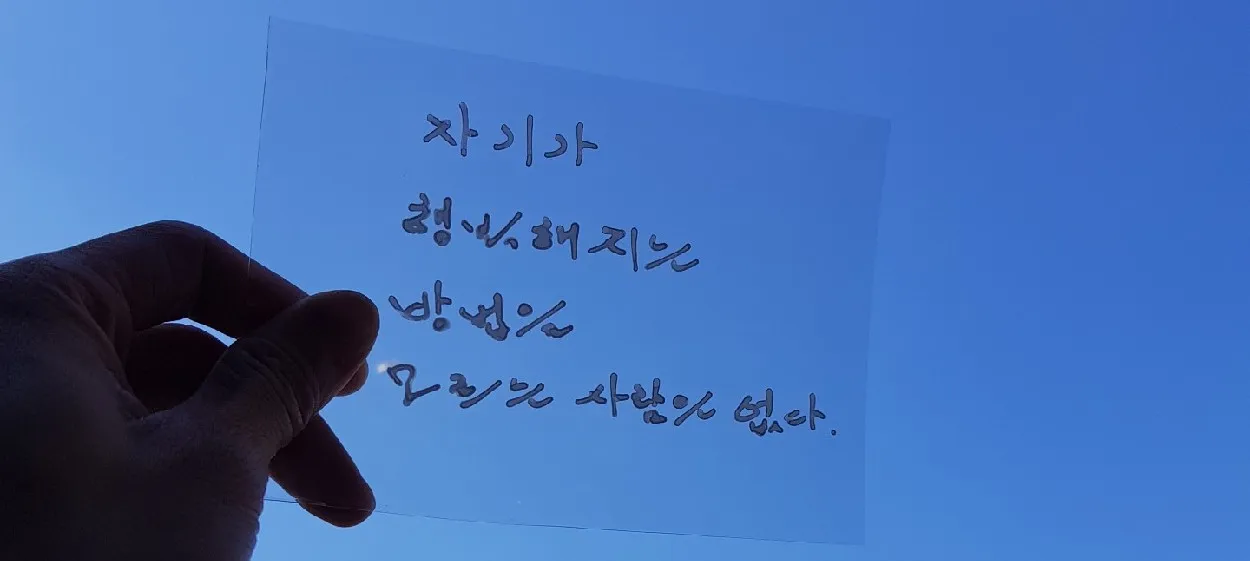 자기가
행복해지는
방법을
모르는 사람은 없다.